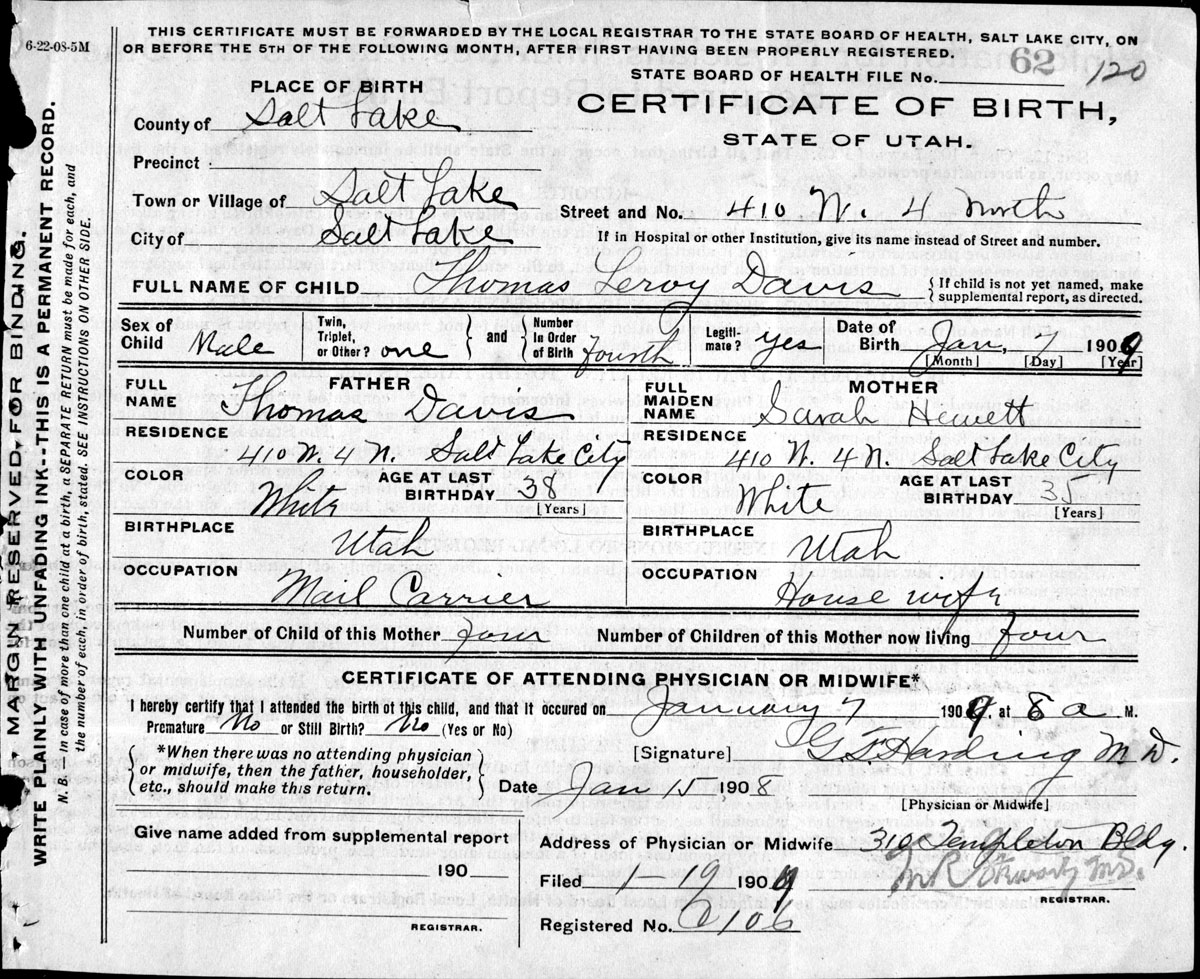 6-22-08-5M
THIS CERTIFICATE MUST BE FORWARDED BY THE LOCAL REGISTRAR TO THE STATE BOARD OF HEALTH, SALT LAKE CITY, ON
OR BEFORE THE 5TH OF THE FOLLOWING MONTH, AFTER FIRST HAVING BEEN PROPERLY REGISTERED.
62
STATE BOARD OF HEALTH FILE No. 120
PLACE OF BIRTH
CERTIFICATE OF BIRTH,
STATE OF UTAH.
County of Salt Lake
Precinct
Town or Village of Salt Lake
Street and No. 410 W. 4 North
City of Salt Lake
If in Hospital or other Institution, give its name instead of Street and number.
FULL NAME OF CHILD Thomas Leroy Davis { If child is not yet named, make supplemental report, as directed.
Sex of Child Male
Twin, Triplet, or Other? one } and { Number In Order of Birth Fourth
Legiti-mate? yes
Date of Birth Jan, 7 1909
[Month] [Day] [Year]
FATHER
FULL NAME Thomas Davis
RESIDENCE 410 W. 4 N. Salt Lake City
COLOR White
AGE AT LAST BIRTHDAY 38 [Years]
BIRTHPLACE Utah
OCCUPATION Mail Carrier
MOTHER
FULL MAIDEN NAME Sarah Hewett
RESIDENCE 410 W. 4 N. Salt Lake City
COLOR White
AGE AT LAST BIRTHDAY 35 [Years]
BIRTHPLACE Utah
OCCUPATION House wife
Number of Child of this Mother four
Number of Children of this Mother now living four
CERTIFICATE OF ATTENDING PHYSICIAN OR MIDWIFE*
I hereby certify that I attended the birth of this child, and that it occured on January 7 1909, at 8 a M.
Premature No or Still Birth? No (Yes or No)
{ *When there was no attending physician
or midwife, then the father, householder,
etc., should make this return. }
[Signature] G F Harding M D.
Date Jan 15 1908
[Physician or Midwife]
Give name added from supplemental report
190
REGISTRAR.
Address of Physician or Midwife 310 Templeton Bldg.
Filed 1 19 1909
REGISTRAR.
Registered No.
MARGIN RESERVED FOR BINDING.
WRITE PLAINLY WITH UNFADING INK--THIS IS A PERMANENT RECORD.
N. B. — In case of more than one child at a birth, a SEPARATE RETURN must be made for each, and
the number of each, in order of birth, stated. SEE INSTRUCTIONS ON OTHER SIDE.